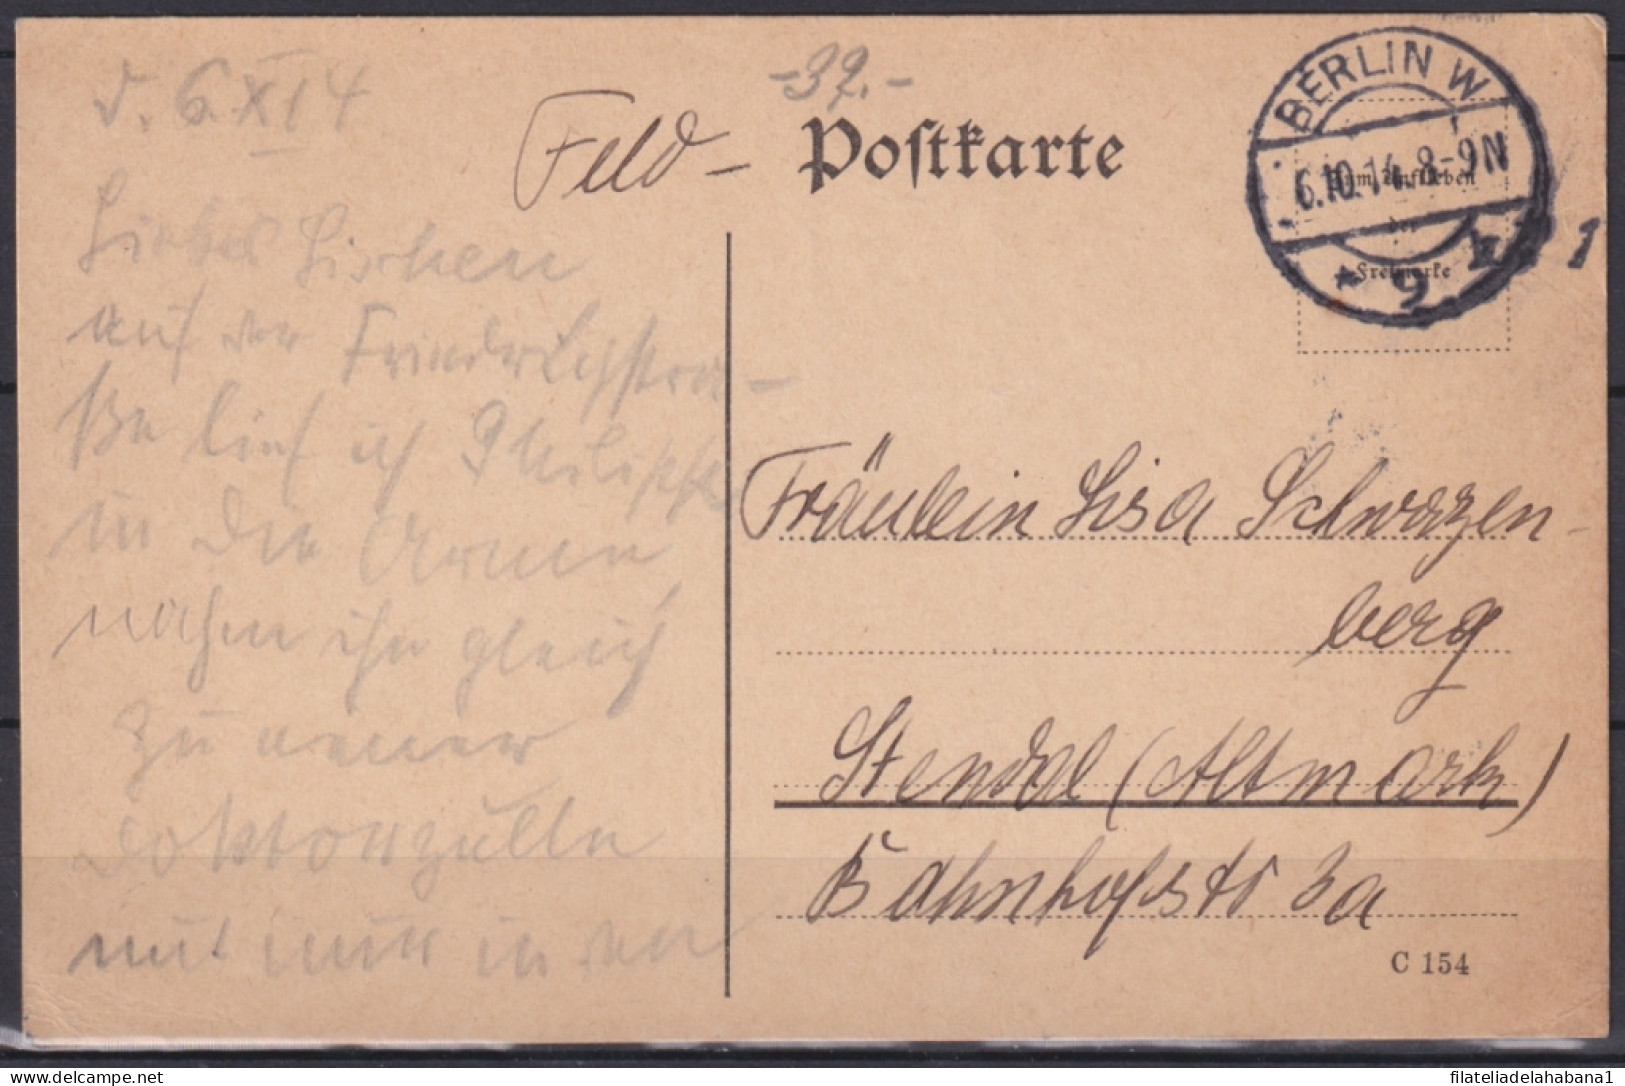 d. 6.XI 14
Liebes Lischen
auf der Friedrichstra-
ße lief ich Philipp
in die Arme,
nahm ihn gleich
zu einer
mit mir in den
-32.-
Feld-
Postkarte
BERLIN W
6.10.14. 8-9N
* 9
Zum Aufkleben
der
Freimarke
1
Fräulein Lisa Schwarzen-
berg
Stendal (Altmark)
Bahnhofstr 3a
C 154
filateliadelahabana1